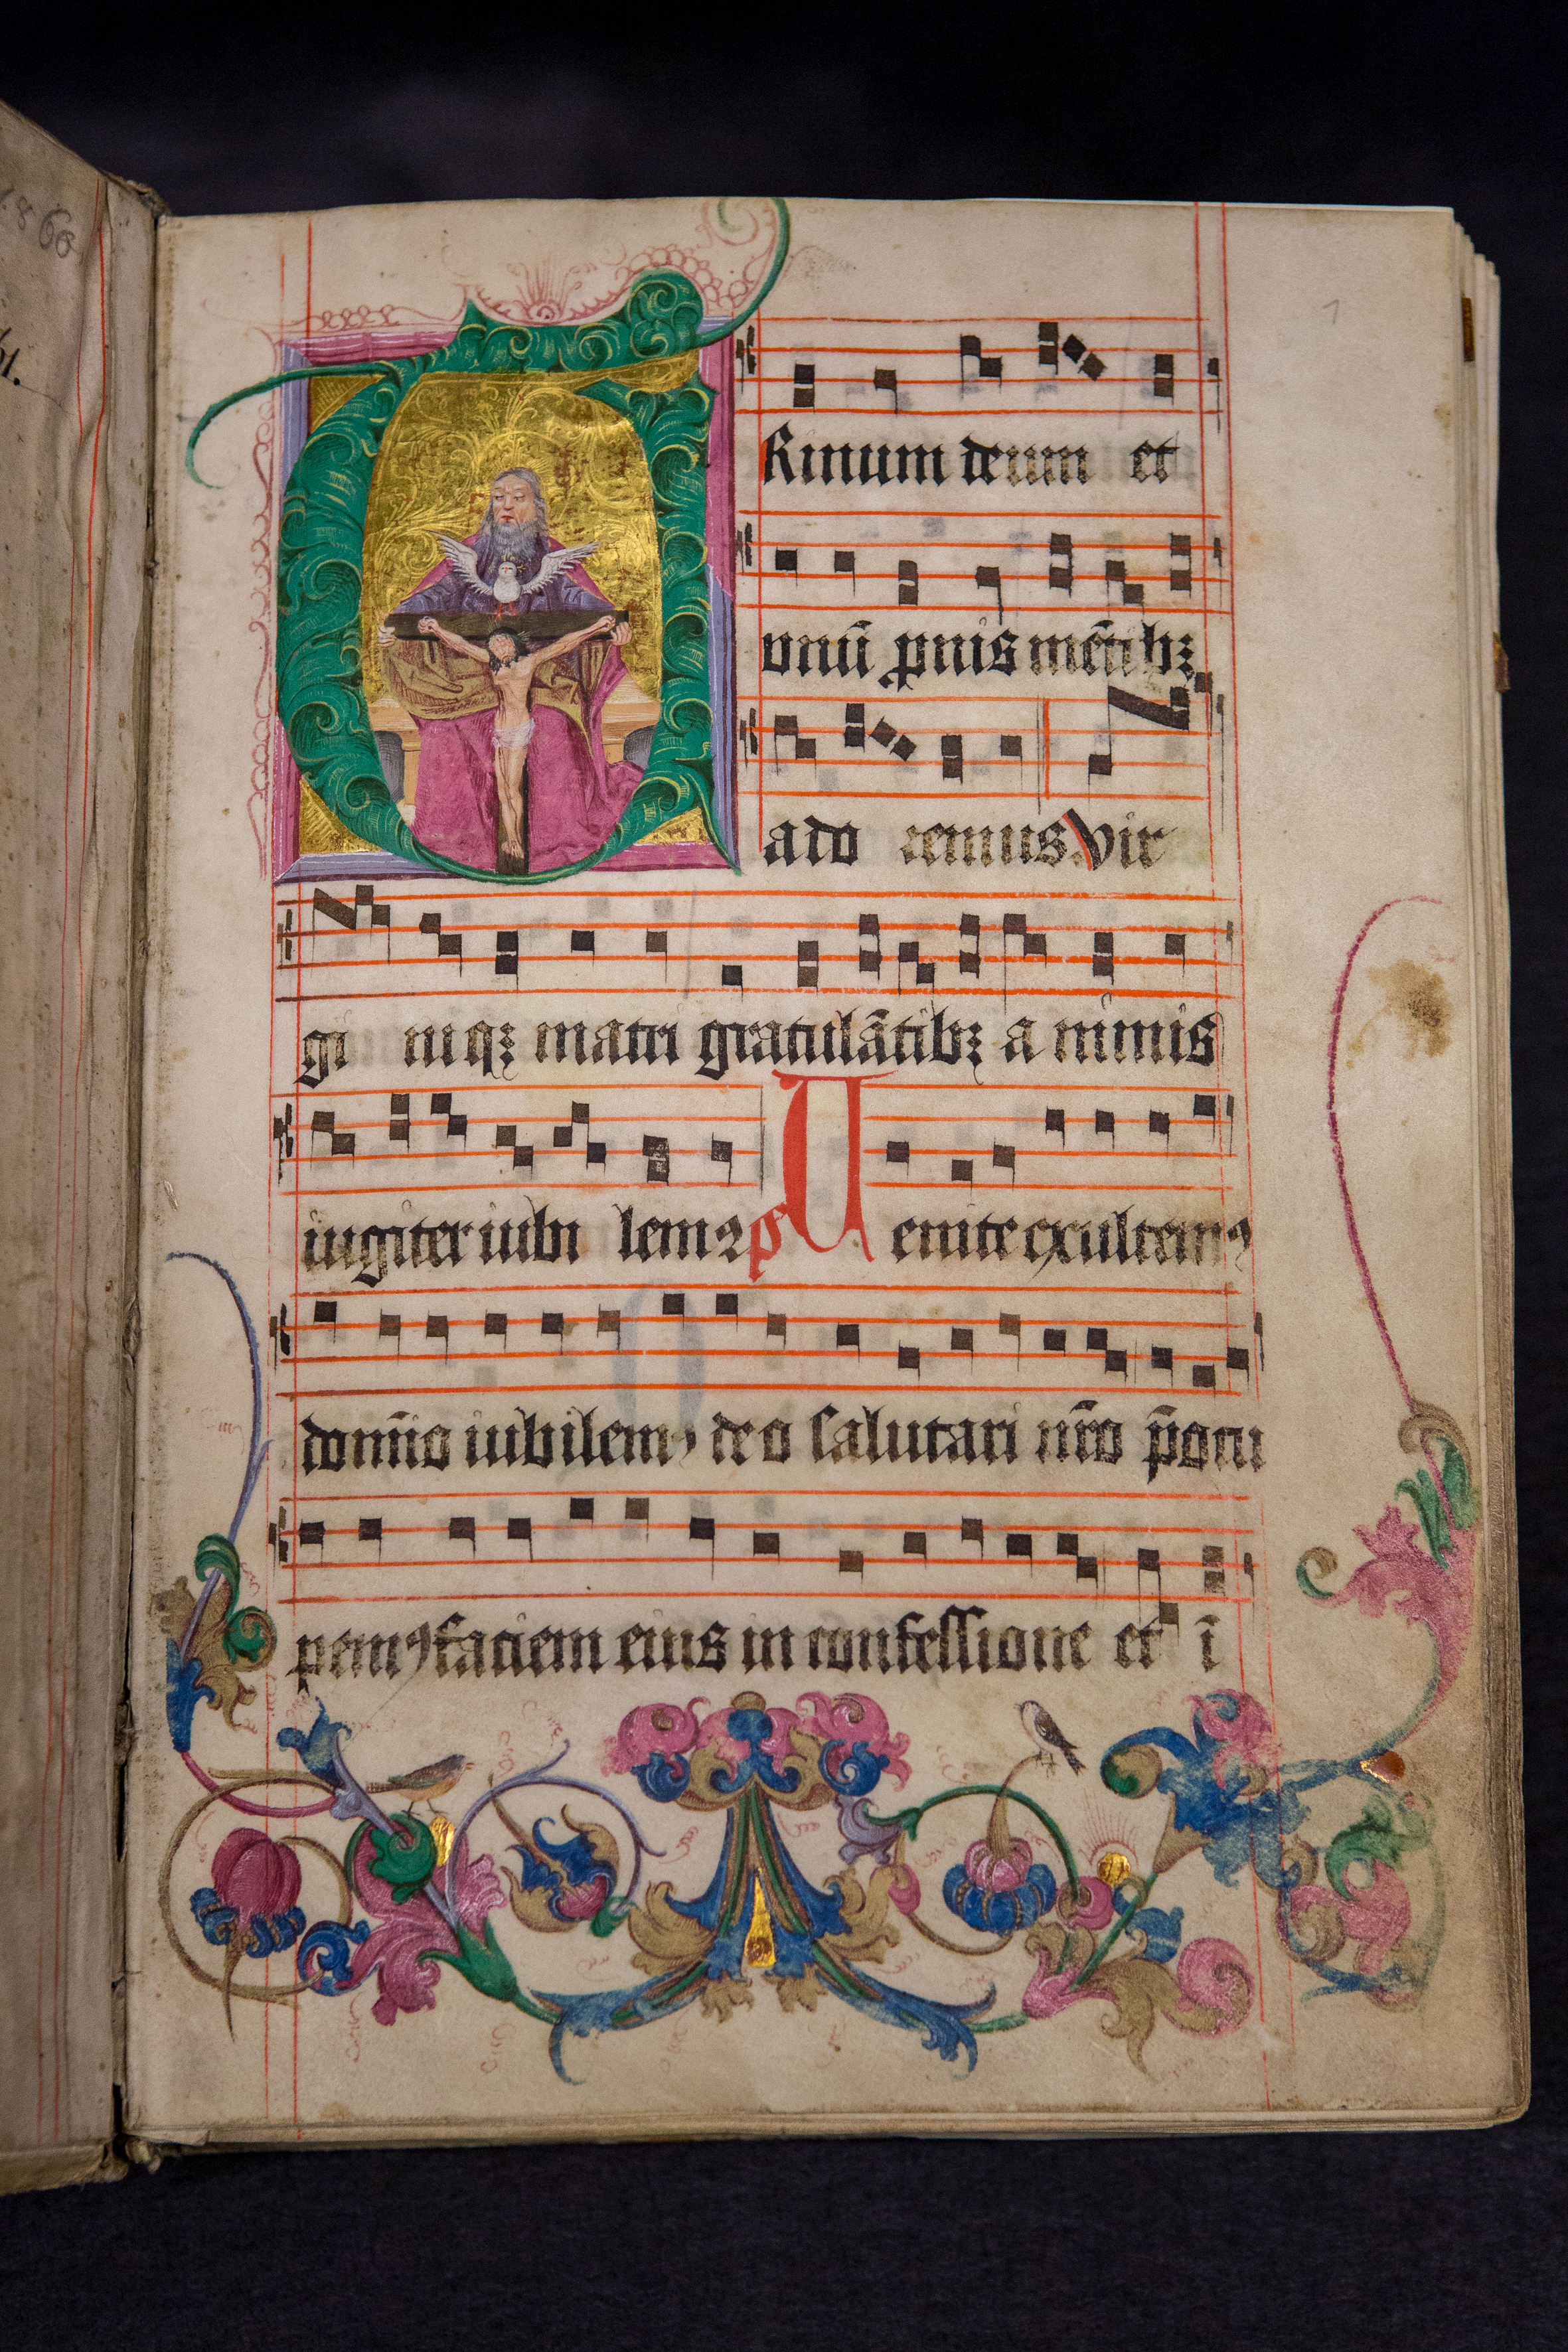 1866
61.
1
TRinum deum et
vnuͫ pnis mẽtibꝫ
ado remus Vir
gi niqꝫ matri gratulãtibꝫ a nimis
iugiter iubi lemꝰ p̃s Venite exultemꝰ
domĩo iubilemꝰ deo salutari nr̃o p̄occu
pemꝰ faciem eius in confessione et ĩ